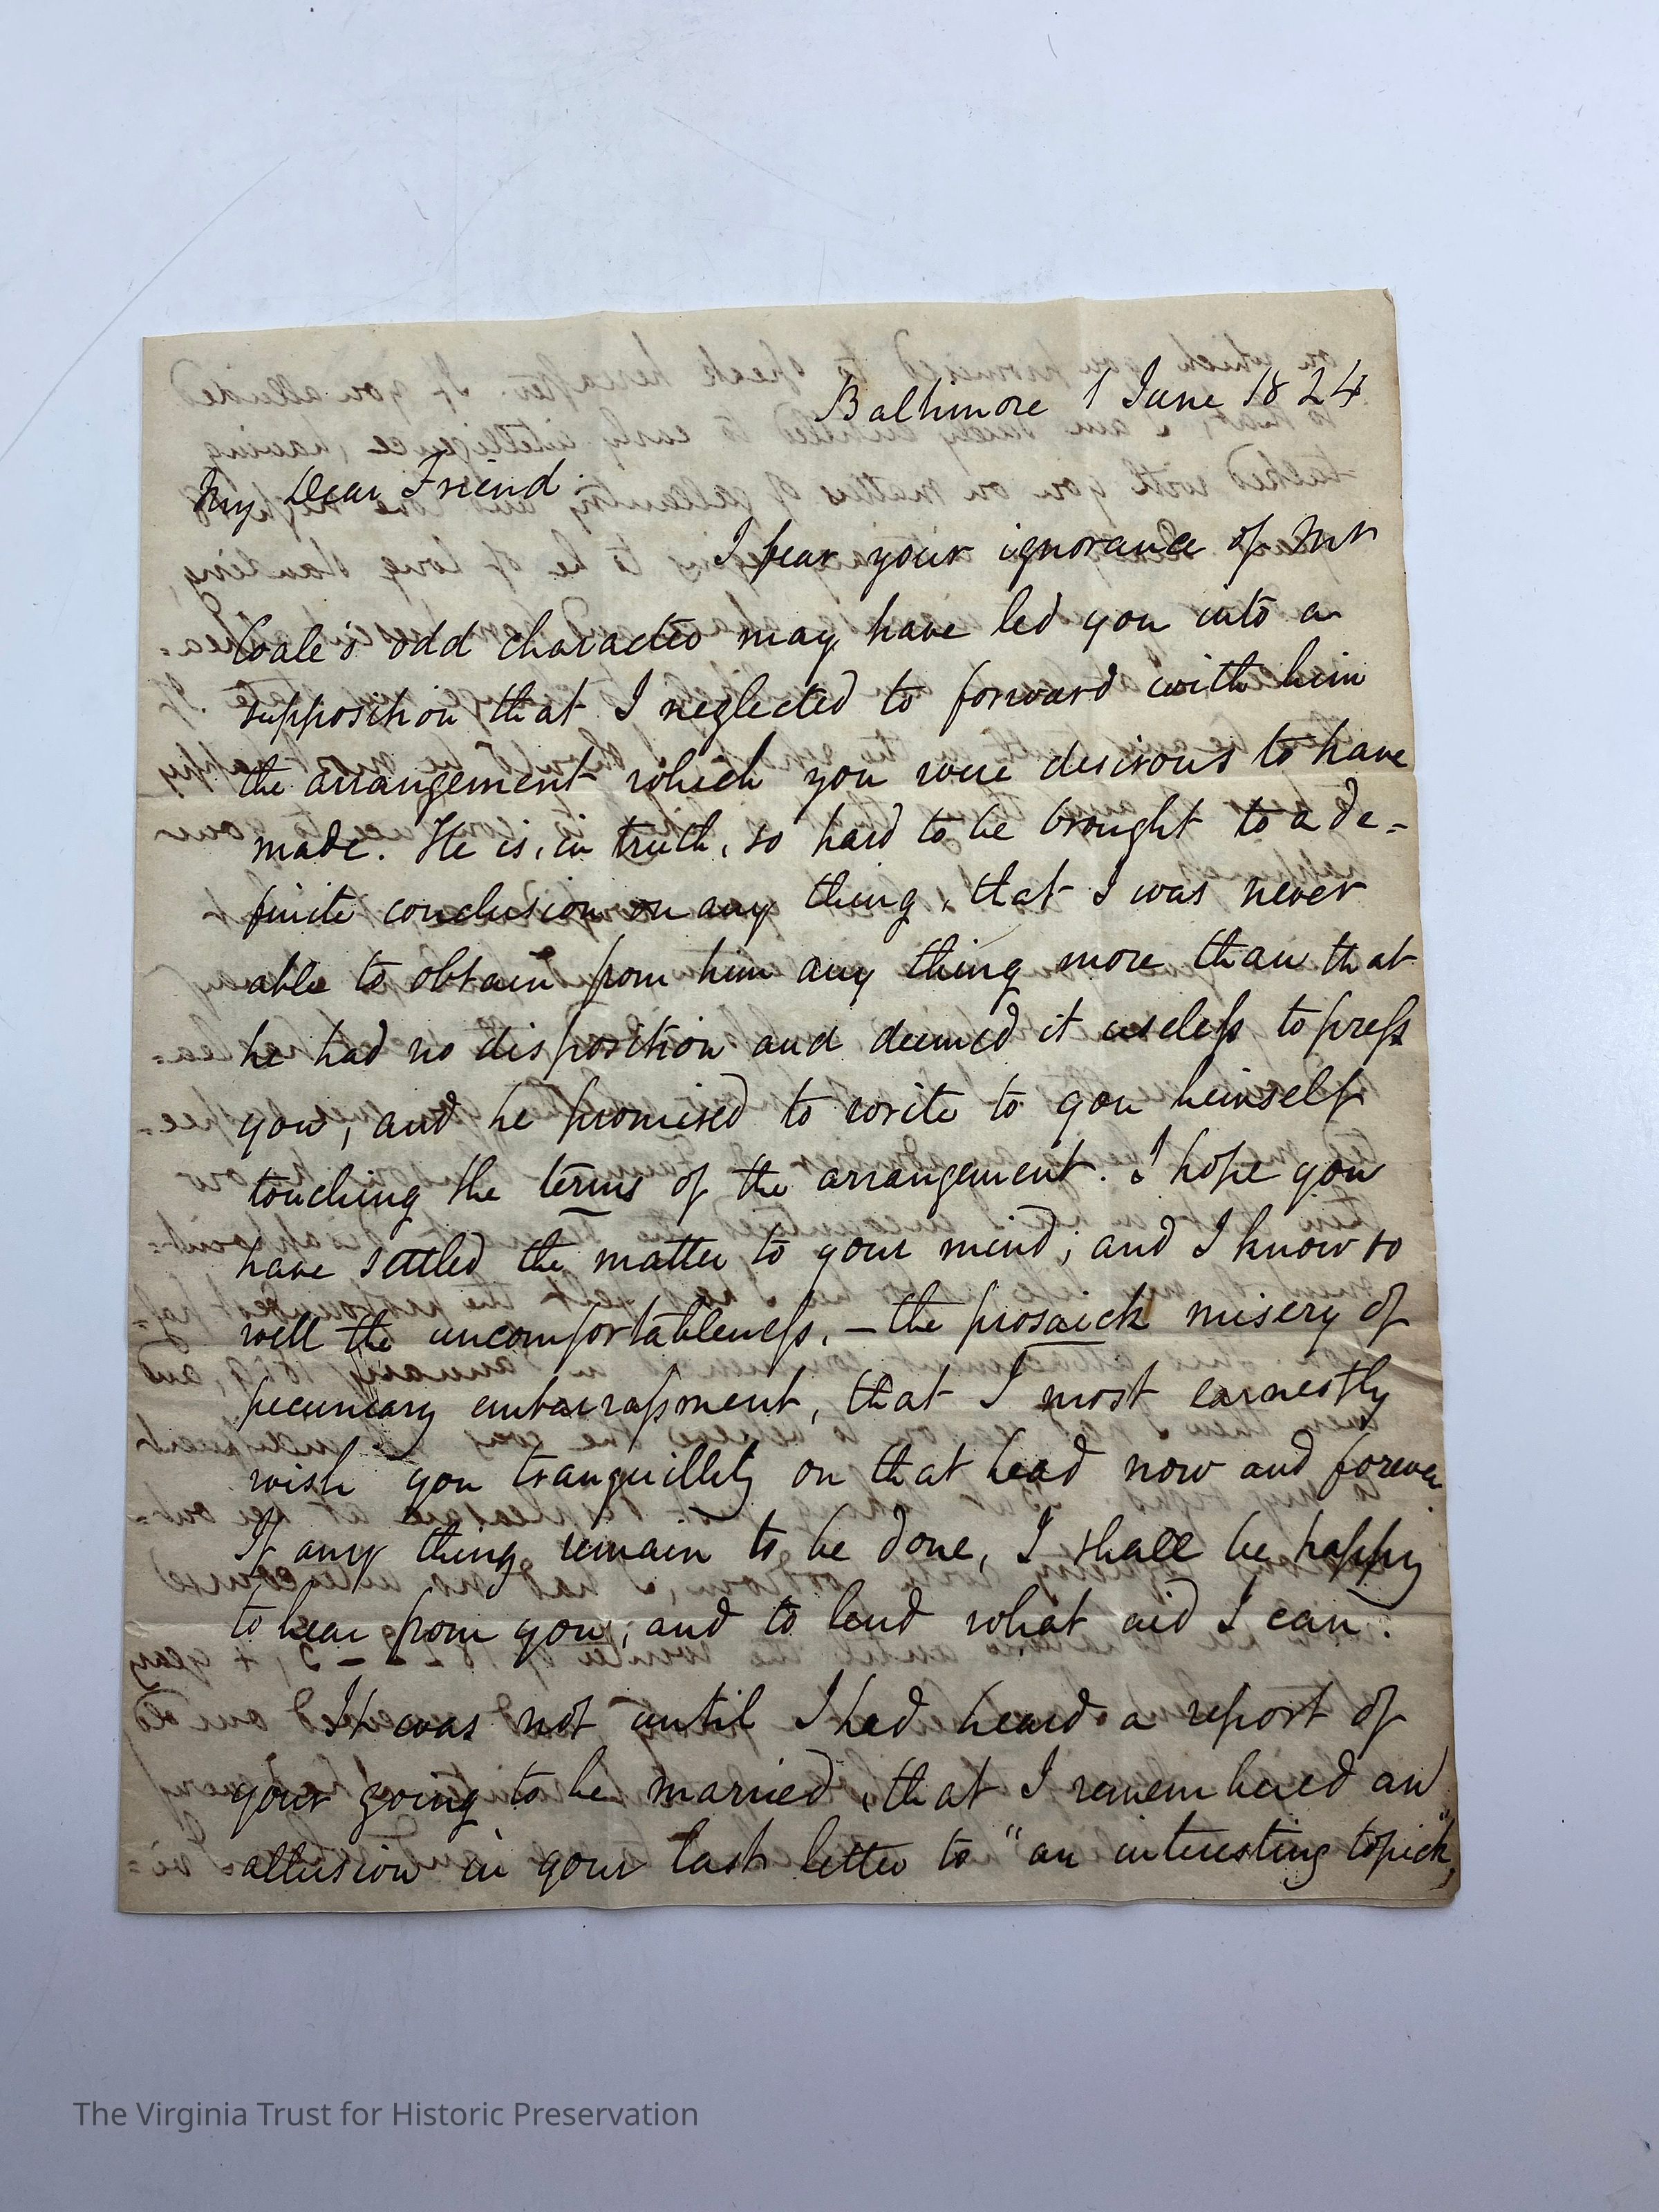 Baltimore 1 June 1824
My Dear Friend
I fear your ignorance of Mr
Coale's odd character may have led you into a
supposition that I neglected to forward with him
the arrangement which you were desirous to have
made. He is, in truth, so hard to be brought to a de=
finite conclusion on any thing, that I was never
able to obtain from him any thing more than that
he had no disposition and deemed it useless to press
you, and he promised to write to you himself
touching the terms of the arrangement. I hope you
have settled the matter to your mind; and I know so
well the uncomfortableness, – the prosaick misery of
pecuniary embarrassment, that I most earnestly
wish you tranquillity on that head now and forever.
If any thing remain to be done, I shall be happy
to hear from you, and to lend what aid I can.
It was not until I had heard a report of
your going to be married, that I remembered an
allusion in your last letter to "an interesting topick",
The Virginia Trust for Historic Preservation